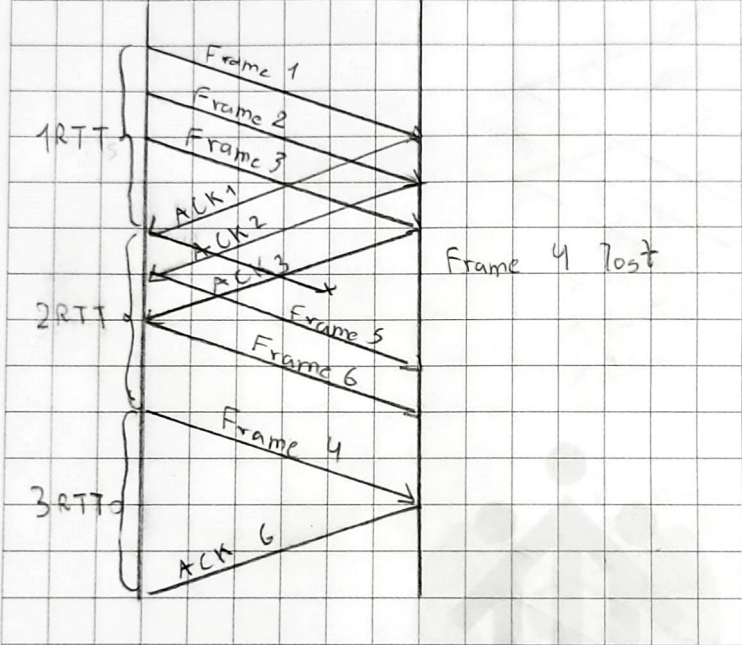 Frame 1
Frame 2
1RTT
Frame 3
ACK 1
ACK 2
ACK 3
Frame 4 lost
2RTT
Frame 5
Frame 6
Frame 4
3RTT
ACK 6